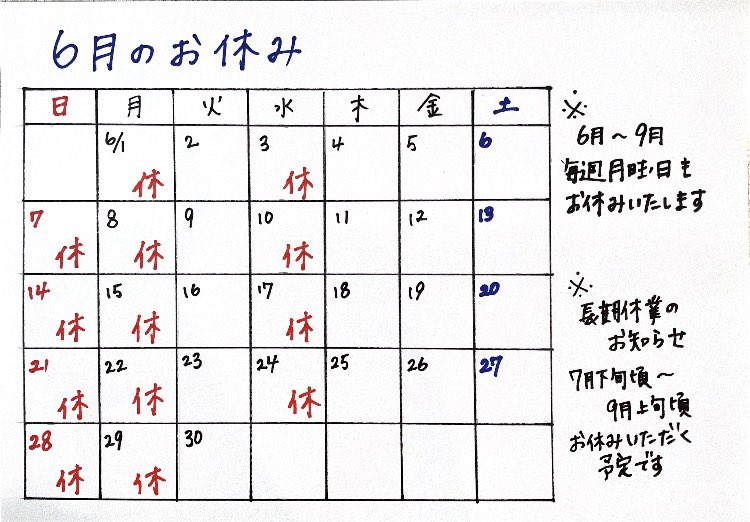 6月のお休み
日 月 火 水 木 金 土
6/1 2 3 4 5 6
休 休
7 8 9 10 11 12 13
休 休 休
14 15 16 17 18 19 20
休 休 休
21 22 23 24 25 26 27
休 休 休
28 29 30
休 休
※
6月〜9月
毎週月曜日も
お休みいたします
※
長期休業の
お知らせ
7月下旬頃〜
9月上旬頃
お休みいただく
予定です